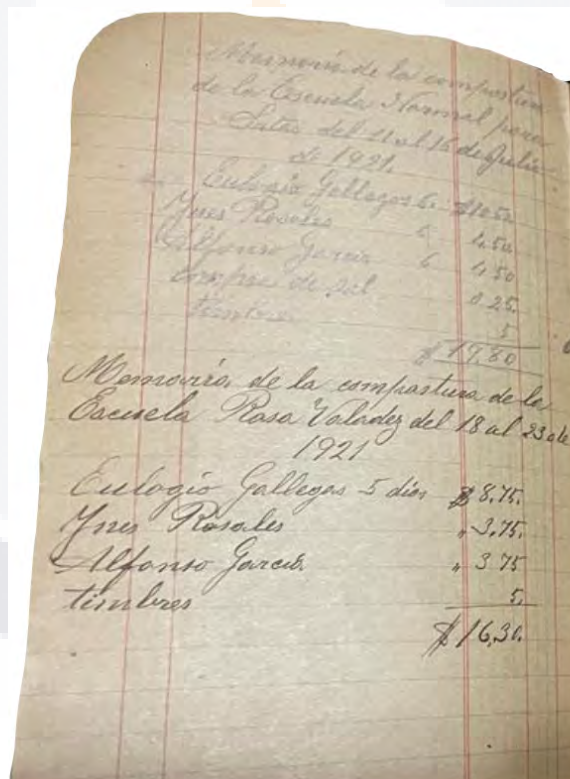 Memoria de la compostura
de la Escuela Normal para
Sritas del 11 al 16 de Julio
de 1921.
Eulogio Gallegos 6. $10.50
Ynes Rosales 6 4.50.
Alfonso Garcia 6 4.50
Compra de sal 0.25.
timbres 5
$ 19.80
Memoria de la compostura de la
Escuela Rosa Valadez del 18 al 23 de
1921
Eulogio Gallegos 5 dias $ 8.75.
Ynes Rosales " 3.75.
Alfonso Garcia. " 3 75
timbres 5.
$ 16,30.